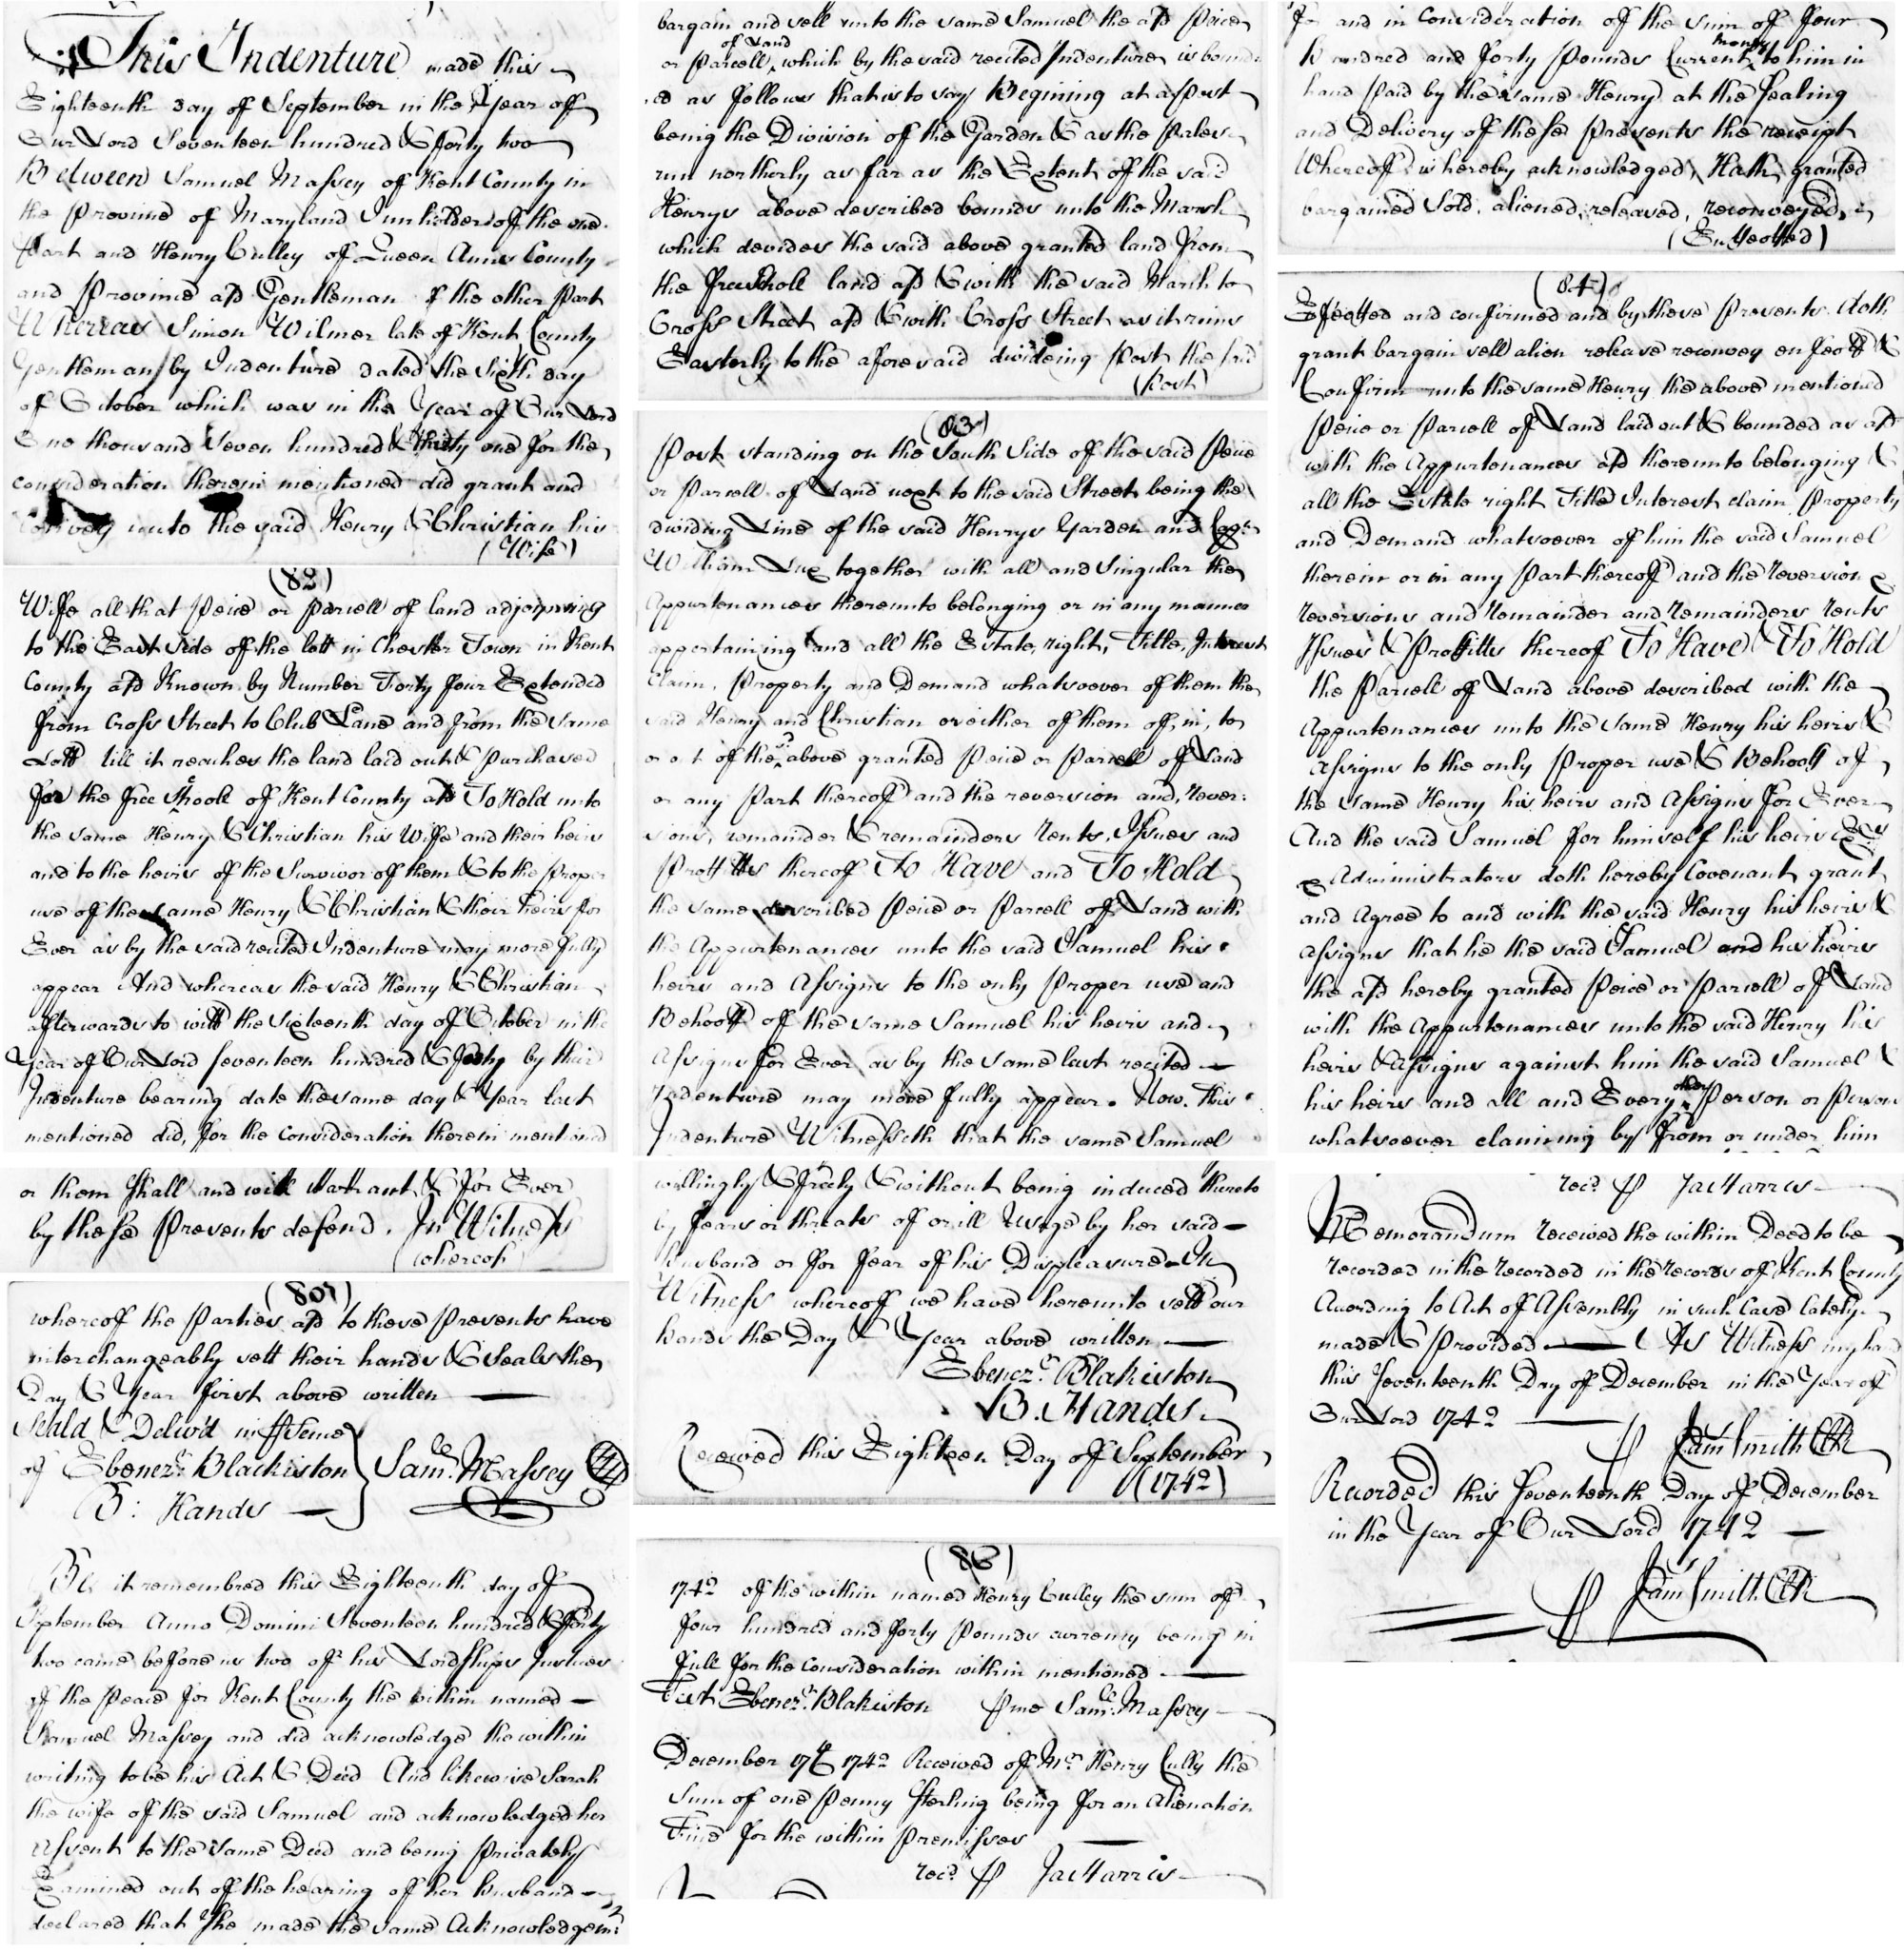 This Indenture made this
Eighteenth day off September in the Year off
Our Lord Seventeen hundred & fforty two
Between Samuel Massey of Kent County in
the Province of Maryland Innholder of the one
Part and Henry Culley of Queen Anns County
and Province afd Gentleman of the other Part
Whereas Simon Wilmer late of Kent County
Gentleman by Indenture dated the Sixth day
of October which was in the Year of Our Lord
One thousand Seven hundred & thirty one for the
consideration therein mentioned did grant and
Convey unto the said Henry & Christian his
(Wife)
(82)
Wiffe all that Peice or Parcell of land adjoynying
to the East Side off the lott in Chester Town in Kent
County afd Known by Number Forty ffour Extended
from Cross Street to Club Lane and from the same
Lott till it reaches the land laid out & Purchased
for the ffree Shoole of Kent County afd To Hold unto
the same Henry & Christian his Wiffe and their heirs
and to the heirs off the Survivor of them & to the Proper
use of the same Henry & Christian & their heirs for
Ever as by the said recited Indenture may more fully
appear And whereas the said Henry & Christian
afterwards to witt the Sixteenth day off October in the
Year of Our Lord Seventeen hundred & fforty by their
Indenture bearing date the same day & Year last
mentioned did, for the consideration therein mentioned
bargain and sell unto the same Samuel the afd Peice
or Parcell, of Land which by the said recited Indenture is bound
ed as follows that is to say Begining at a Post
being the Division of the Garden & as the Pales
run northerly as far as the Extent off the said
Henrys above described bounds unto the Marsh
which devides the said above granted land from
the ffreeshooll land afd & with the said Marsh to
Cross Street afd & with Cross Street as it runs
Easterly to the aforesaid dividing Post the said
(Post)
(83)
Post standing on the South Side of the said Peice
or Parcell of Land next to the said Street being the
dividing Line of the said Henrys Garden and Capt
William Lux together with all and Singular the
Appurtenances thereunto belonging or in any manner
appertaining and all the Estate, right, Title, Interest
Claim, Property and Demand whatsoever of them the
said Henry and Christian or either of them off, in, to
or out of the sd above granted Peice or Parcell off Land
or any Part thereoff and the reversion and, Rever:
sions, remainder & remainders Rents, Issues and
Proffitts thereof To Have and To Hold
the same described Peice or Parcell off Land with
the Appurtenances unto the said Samuel his
heirs and Assigns to the only Proper use and
Behooff off the same Samuel his heirs and
Assigns for Ever as by the same last recited
Indenture may more fully appear. Now This
Indenture Witnesseth that the same Samuel
for and in Consideration off the Sum of ffour
Hundred and fforty Pounds Current money to him in
hand Paid by the same Henry at the Sealing
and Delivery of these Presents the receipt
Whereoff is hereby acknowledged, Hath granted
bargained Sold, aliened, released, reconveyed,
(Enfeoffed)
(84)
Efeoffed and confirmed and by these Presents doth
grant bargain sell alien release reconvey enfeoff &
Confirm unto the same Henry the above mentioned
Peice or Parcell of Land laid out & bounded as afd
with the Appurtenances afd thereunto belonging &
all the Estate right Title Interest claim Property
and Demand whatsoever of him the said Samuel
therein or in any Part thereoff and the Reversion &
Reversions and Remainder and Remainders Rents
Issues & Proffitts thereof To Have & To Hold
the Parcell off Land above described with the
Appurtenances unto the same Henry his heirs &
Assigns to the only Proper use & Behooff of
the same Henry his heirs and Assigns for Ever
And the said Samuel for himself his heirs Exrs
& Administrators doth hereby Covenant grant
and Agree to and with the said Henry his heirs &
assigns that he the said Samuel and his heirs
the afd hereby granted Peice or Parcell off Land
with the Appurtenances unto the said Henry his
heirs & Assigns against him the said Samuel &
his heirs and all and Every other Person or Person
whatsoever claiming by from or under him
or them shall and will Warrant & for Ever
by these Presents defend. In Witness
(whereof)
whereoff the Parties afd to these Presents have
interchangeably sett their hands & Seals the
Day & Year first above written
Seald & Delivd in Psence
of Ebenezr. Blackiston Saml. Massey
B: Hands
Be it remembred this Eighteenth day off
September Anno Domini Seventeen hundred & fforty
two came before us two of his Lordships Justices
of the Peace for Kent County the within named
Samuel Massey and did acknowledge the within
writing to be his Act & Deed And likewise Sarah
the wife of the said Samuel and acknowledged her
assent to the same Deed and being Privately
Examined out off the hearing of her husband
declared that She made the same Acknowledgemt
willingly & ffreely & without being induced thereto
by fears or threats of or ill Usage by her said
husband or for fear of his Displeasure In
Witness whereoff we have hereunto sett our
hands the Day & Year above written
Ebenezr. Blakiston
B. Hands
Received this Eighteen Day off September
(1742)
(86)
1742 of the within named Henry Culley the sum of
four hundred and forty Pounds currency being in
full for the consideration within mentioned
Test Ebenezr. Blakiston P me Saml. Massey
December 17th 1742 Received off Mr. Henry Cully the
Sum of one Penny Sterling being for an Alienation
Fine for the within Premisses
recd. P Ja Harris
recd. P Ja Harris
Memorandum Received the within Deed to be
recorded in the Recorded in the Records off Kent County
According to Act of Assembly in such Case lately
made & Provided As Witness my hand
this Seventeenth Day off December in the Year off
Our Lord 1742
P Jam Smith Clk
Recorded this Seventeenth Day off December
in the Year of Our Lord 1742
P Jam Smith Clk